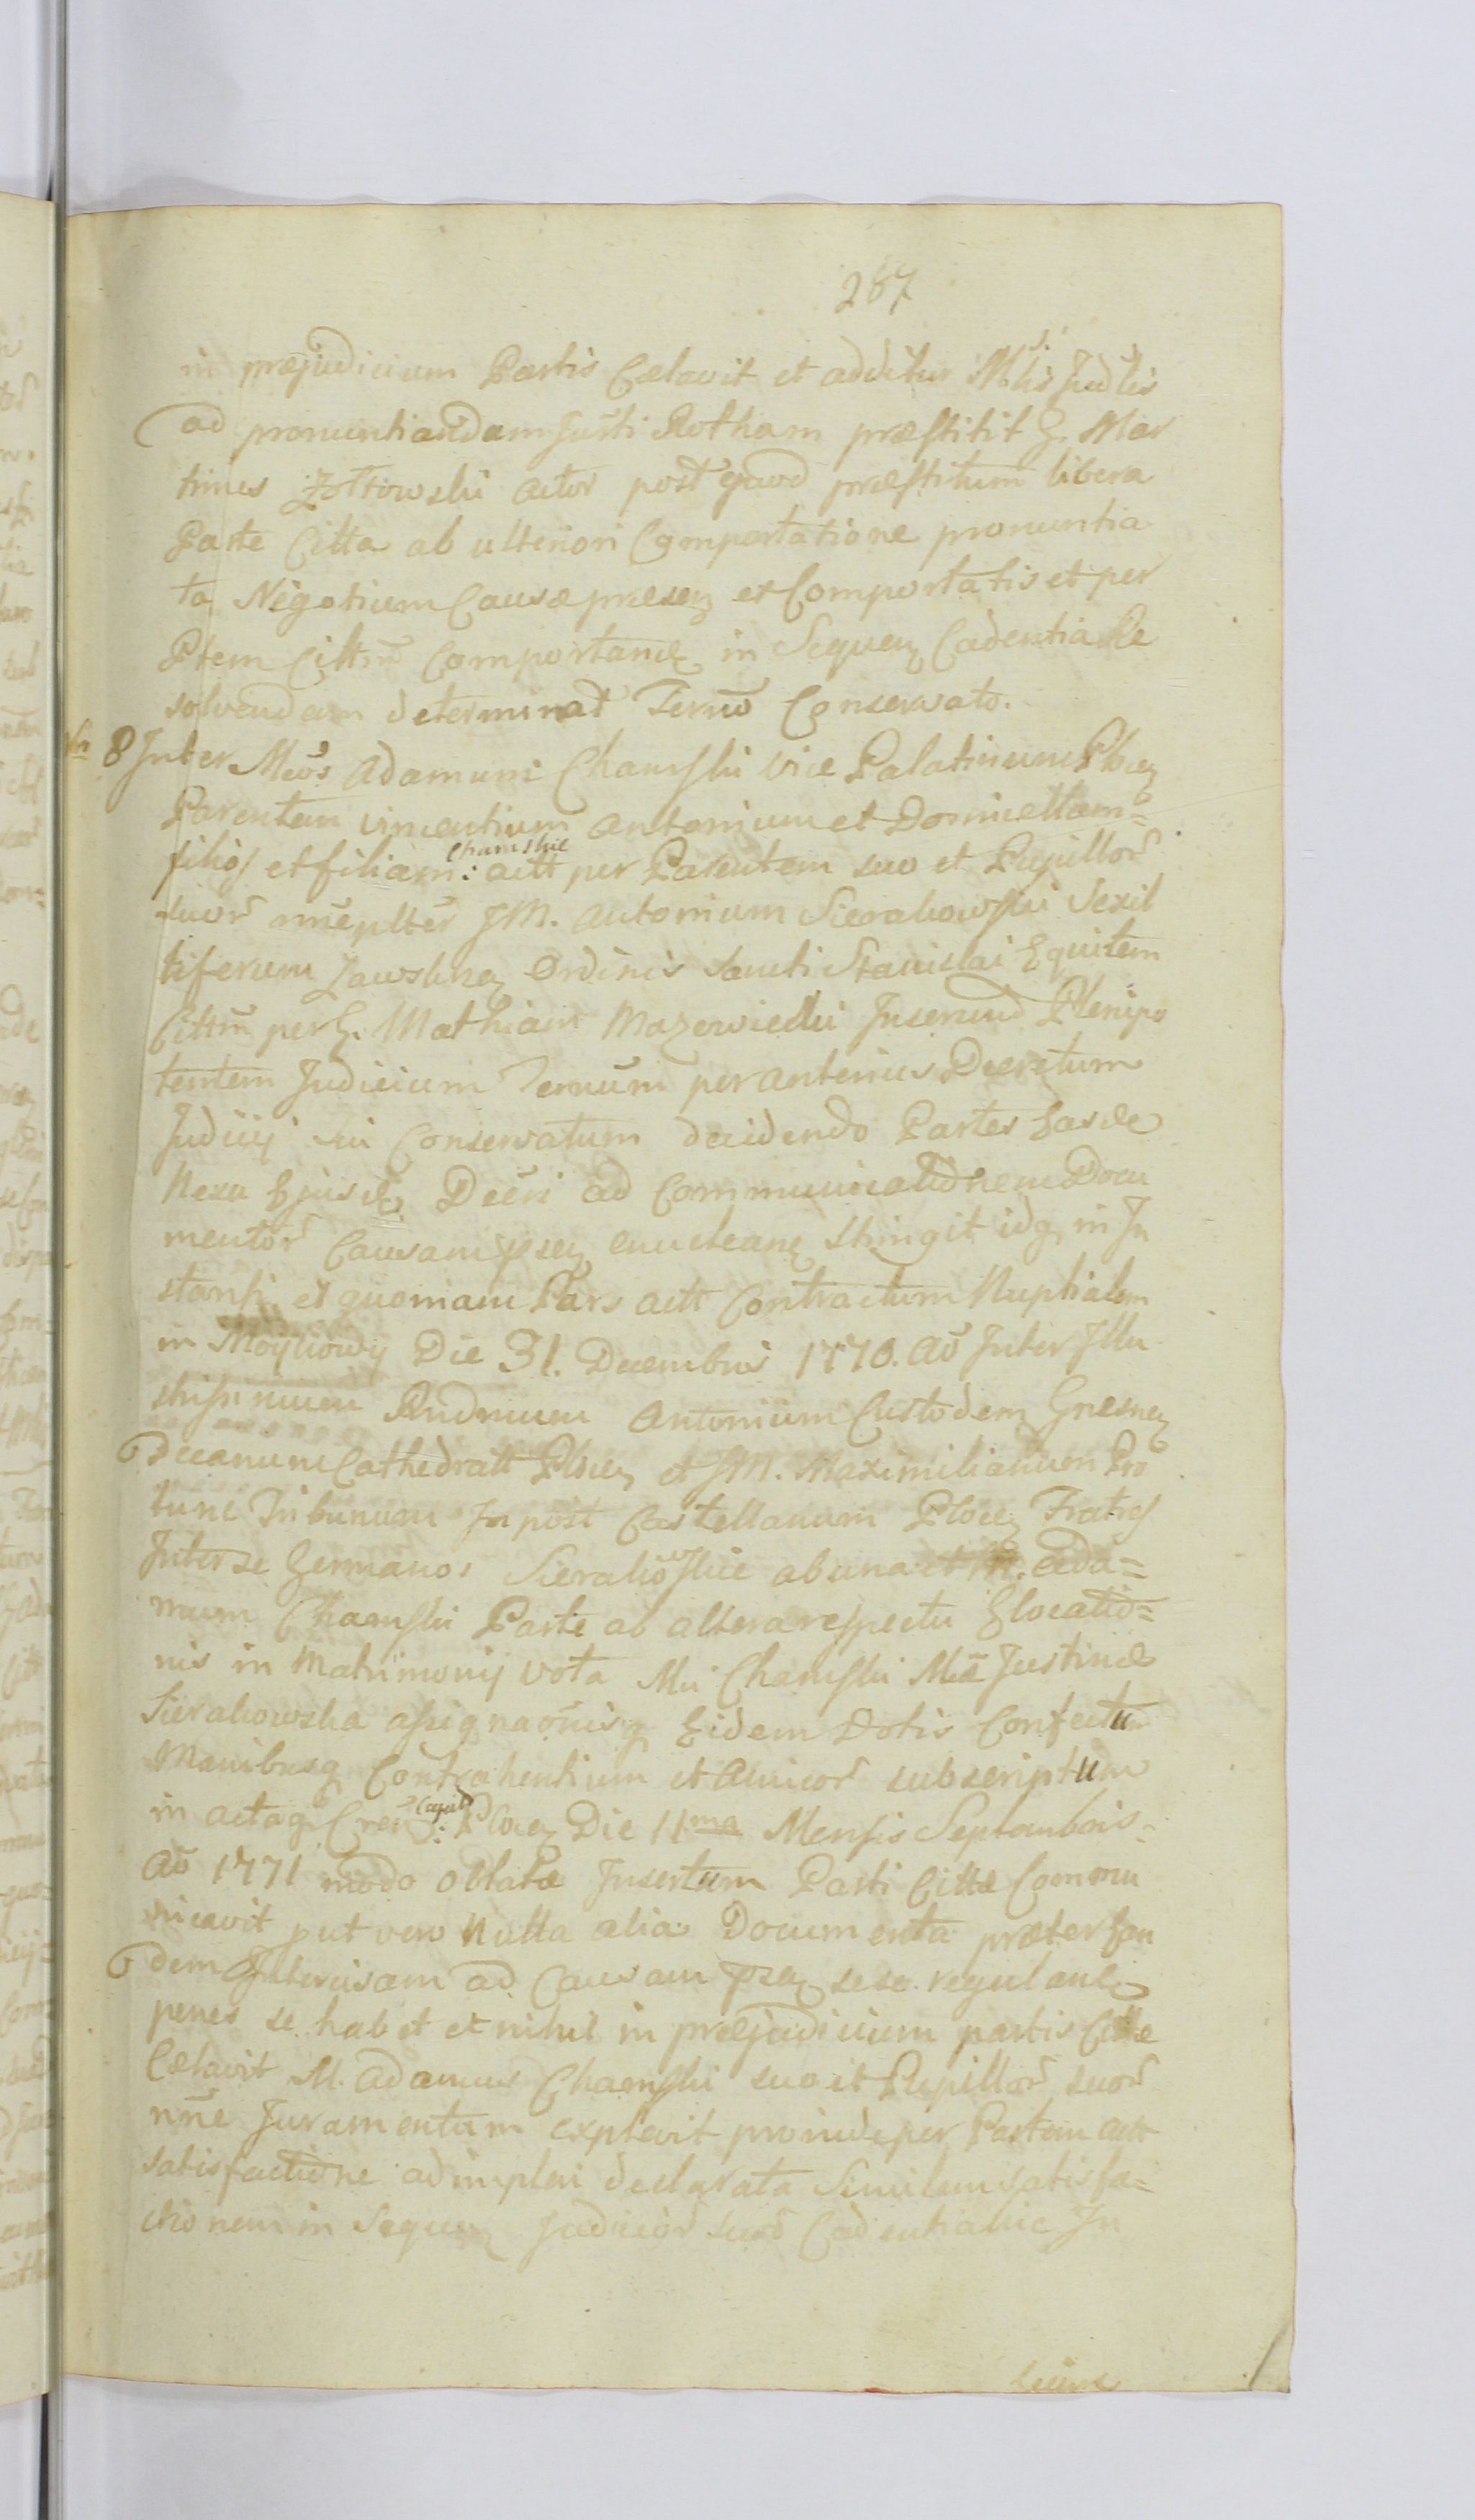 287
in præjudicium Partis Celavit et additur Mblis Judlis
ad pronuntiandam Justi Rotham præstitit G. Mar
tinus Zottowski actor post quod præstitum libera
Parte Citta ab ulteriori Comportatione pronuntia
ta Negotium Causæ præsen et Comportatis et per
Ptem Cittm Comportand in Sequen Cadentia Re
solvendum determinat Termo Conservato.
8 Inter Mcos Adamum Chamski Vice Palatinum Ploc
Parentem Vincentium Antonium et Domicellam=
filios et filiam: Chamskie actt per Parentem suo et Pupillor
suor nne pltter JM. Antonium Sierakowski Vexil
liferum Zawskrz Ordinis Sancti Stanislai Equitem
Cittm per G. Mathiam Mazowiecki Inserend Plenipo
tentem Judicium Termum per anterius Decretum
Judicij sui Conservatum decidendo Partes hasce
Nexu Ejusd Decri ad Communicationem Docu
mentor Causam psen enuclean stringit idq in In
stanti, et quoniam Pars actt Contractum Nuptialem
in Moykowy Die 31. Decembris 1770. Ao Inter Illu
strissimum Rndmum Antonium Custodem Gnesnen
Decanum Cathedratt Plocen et JM. Maximilianum Pro
tunc Tribunum In post Castellanum Plocen Fratres
Inter se Germanos Sierakowskie ab una et M. Ada=
mum Chamski Parte ab altera respectu Elocatio=
nis in Matrimonij vota Mci Chamski Mcæ Justinæ
Sierakowska assignaonisq Eidem Dotis Confectu
Manibusq Contrahentium et Amicor subscriptum
in actaq Cren Capit: Plocen Die 11ma Mensis Septembris
Ao 1771 modo oblatæ Insertum Parti Cittæ Commu
nicavit put vero Nulla alia Documenta præter ean
dem Intercisam ad Causam psen sese regulan
penes se habet et nihil in præjudicium partis Cittæ
Celavit M. Adamus Chamski suo et Pupillor suor
nne Juramentum explevit proinde per Partem actt
satisfactione adimpleri declarata Similem satisfa=
ctionem in Sequen Judicior suor Cadentia hic In